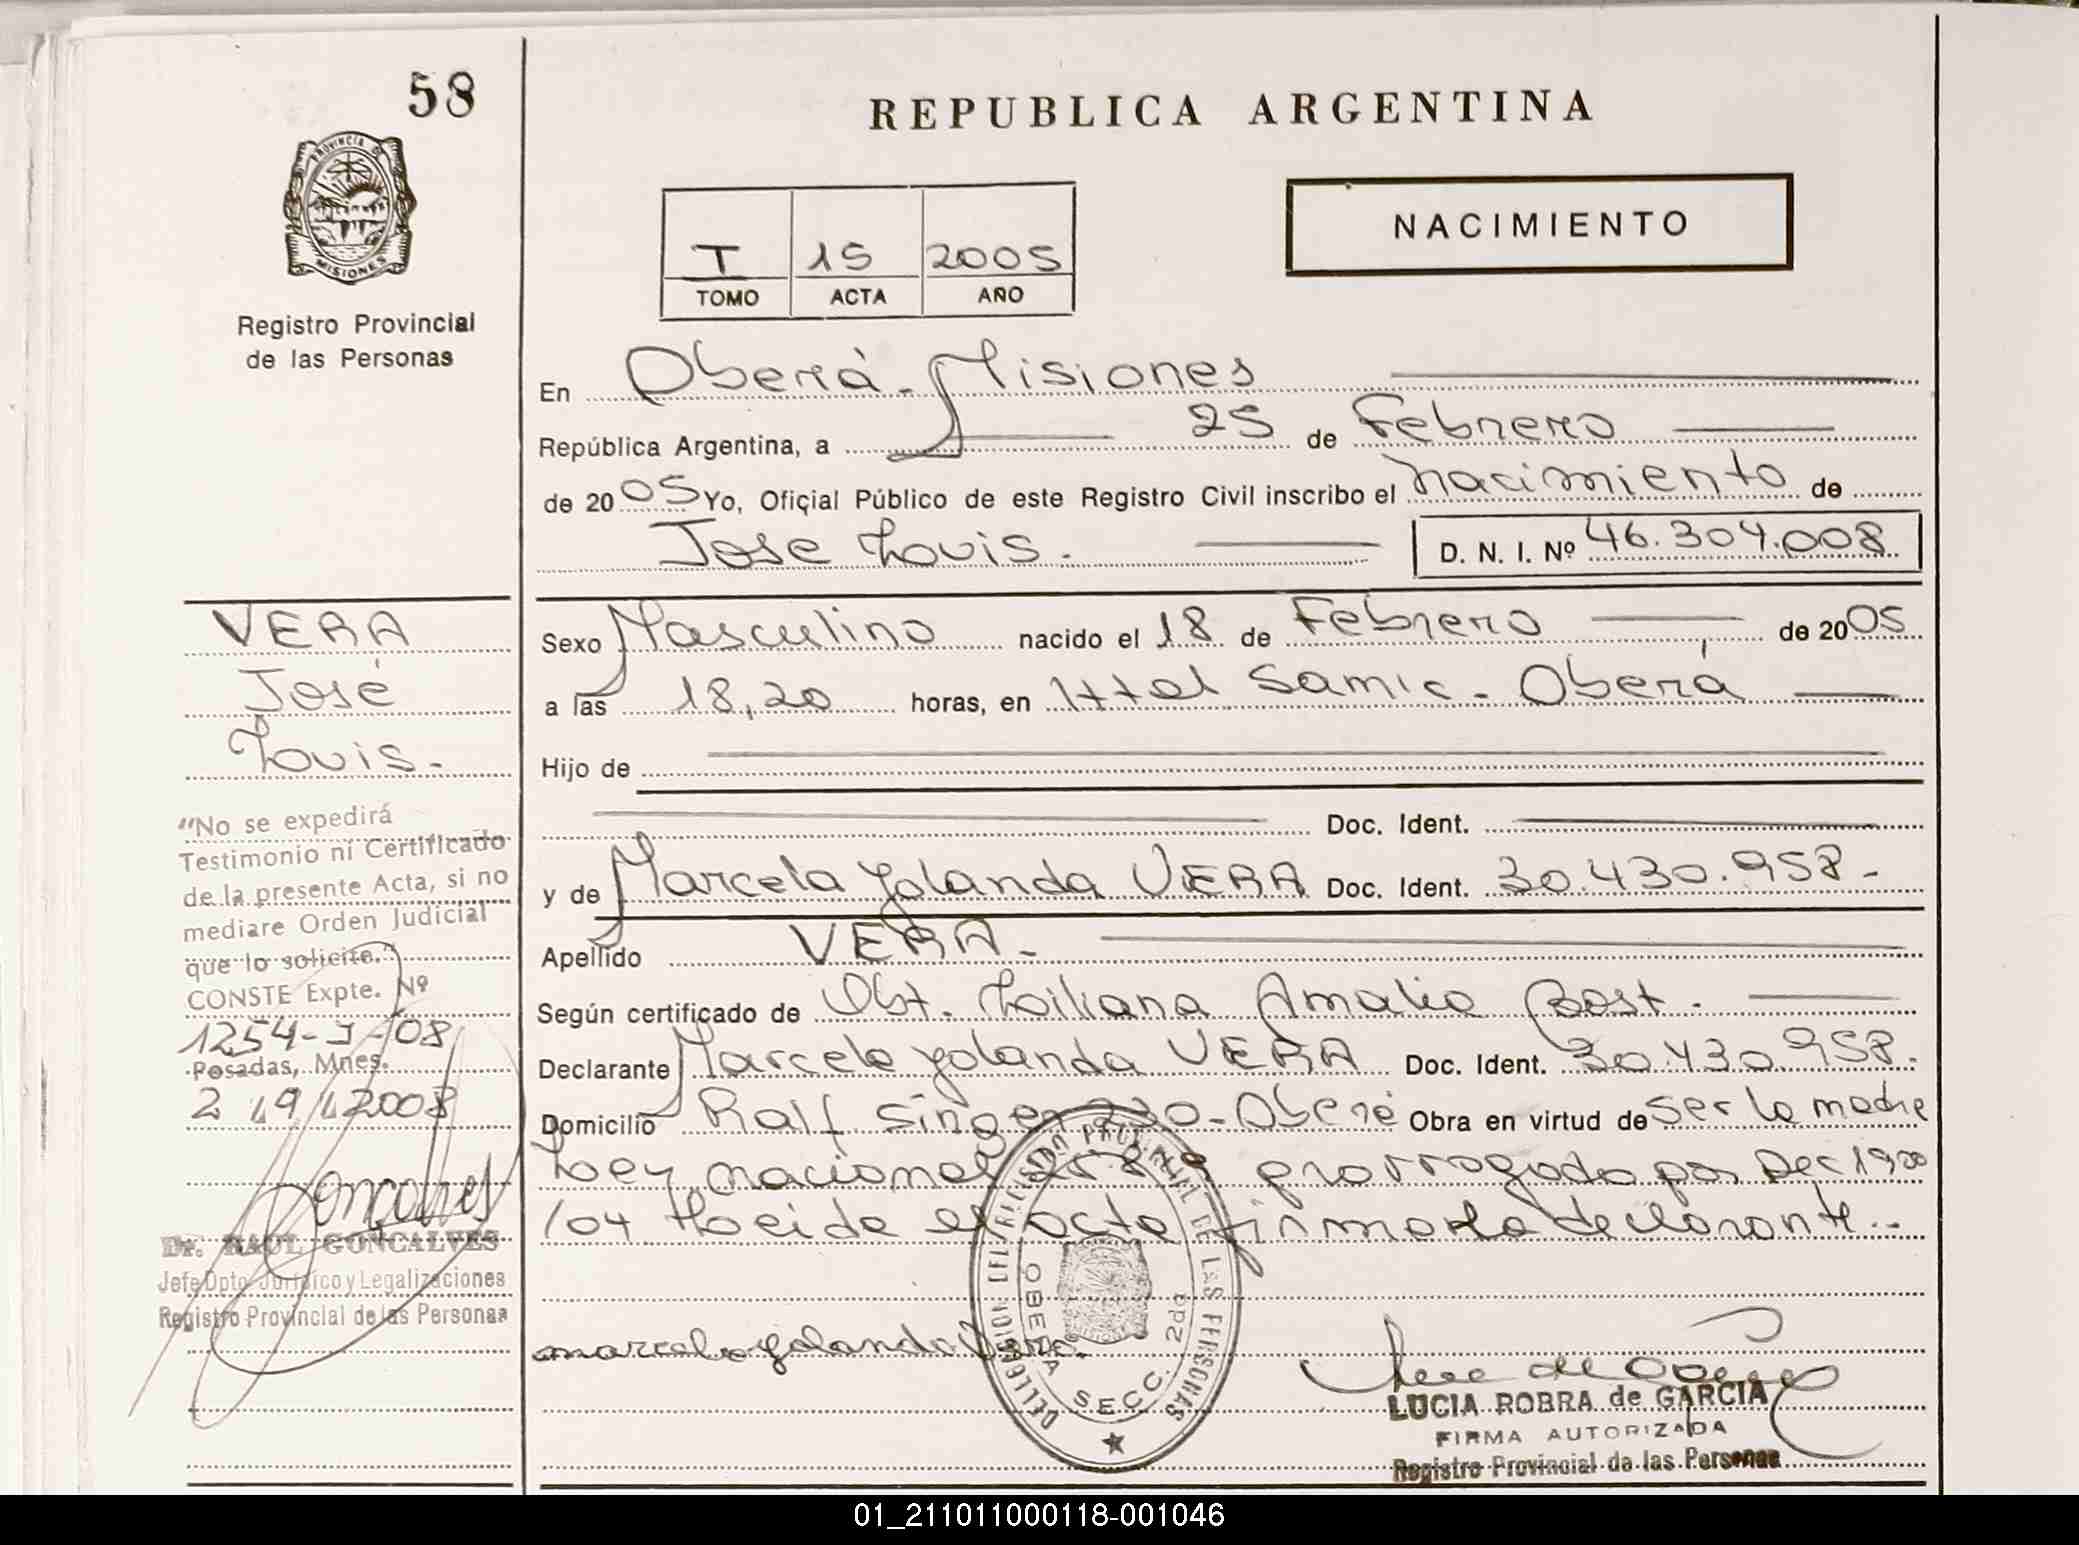 58
REPUBLICA ARGENTINA
PROVINCIA DE
MISIONES
NACIMIENTO
T 15 2005
TOMO ACTA AÑO
Registro Provincial
de las Personas
En Oberá - Misiones
República Argentina, a 25 de Febrero
de 2005 Yo, Oficial Público de este Registro Civil inscribo el nacimiento de
Jose Louis. D. N. I. Nº 46.304.008
VERA
José
Louis.-
Sexo Masculino nacido el 18 de Febrero de 2005
a las 18,20 horas, en Httal Samic - Oberá
Hijo de
Doc. Ident.
y de Marcela Yolanda VERA Doc. Ident. 30.430.958.-
Apellido VERA.-
Según certificado de Obt. Liliana Amalia Bost.
Declarante Marcela Yolanda VERA Doc. Ident. 30.430.958.
Domicilio Ralf Singer 230 - Oberá Obra en virtud de ser la madre
Ley nacional prorrogada por Dec 1900
/04 Leida el acta firma la declarante.-
"No se expedirá
Testimonio ni Certificado
de la presente Acta, si no
mediare Orden Judicial
que lo solicite."
CONSTE Expte. Nº
1254-J-08
Posadas, Mnes.
2 /9/2008
Goncalves
Dr. RAUL GONCALVES
Jefe Dpto Jurídico y Legalizaciones
Registro Provincial de las Personas
marcela yolanda Vera.
DELEGACION DEL REGISTRO PROVINCIAL DE LAS PERSONAS
OBERA SECC. 2da
MISIONES
LUCIA ROBRA de GARCIA
FIRMA AUTORIZADA
Registro Provincial de las Personas
01_211011000118-001046